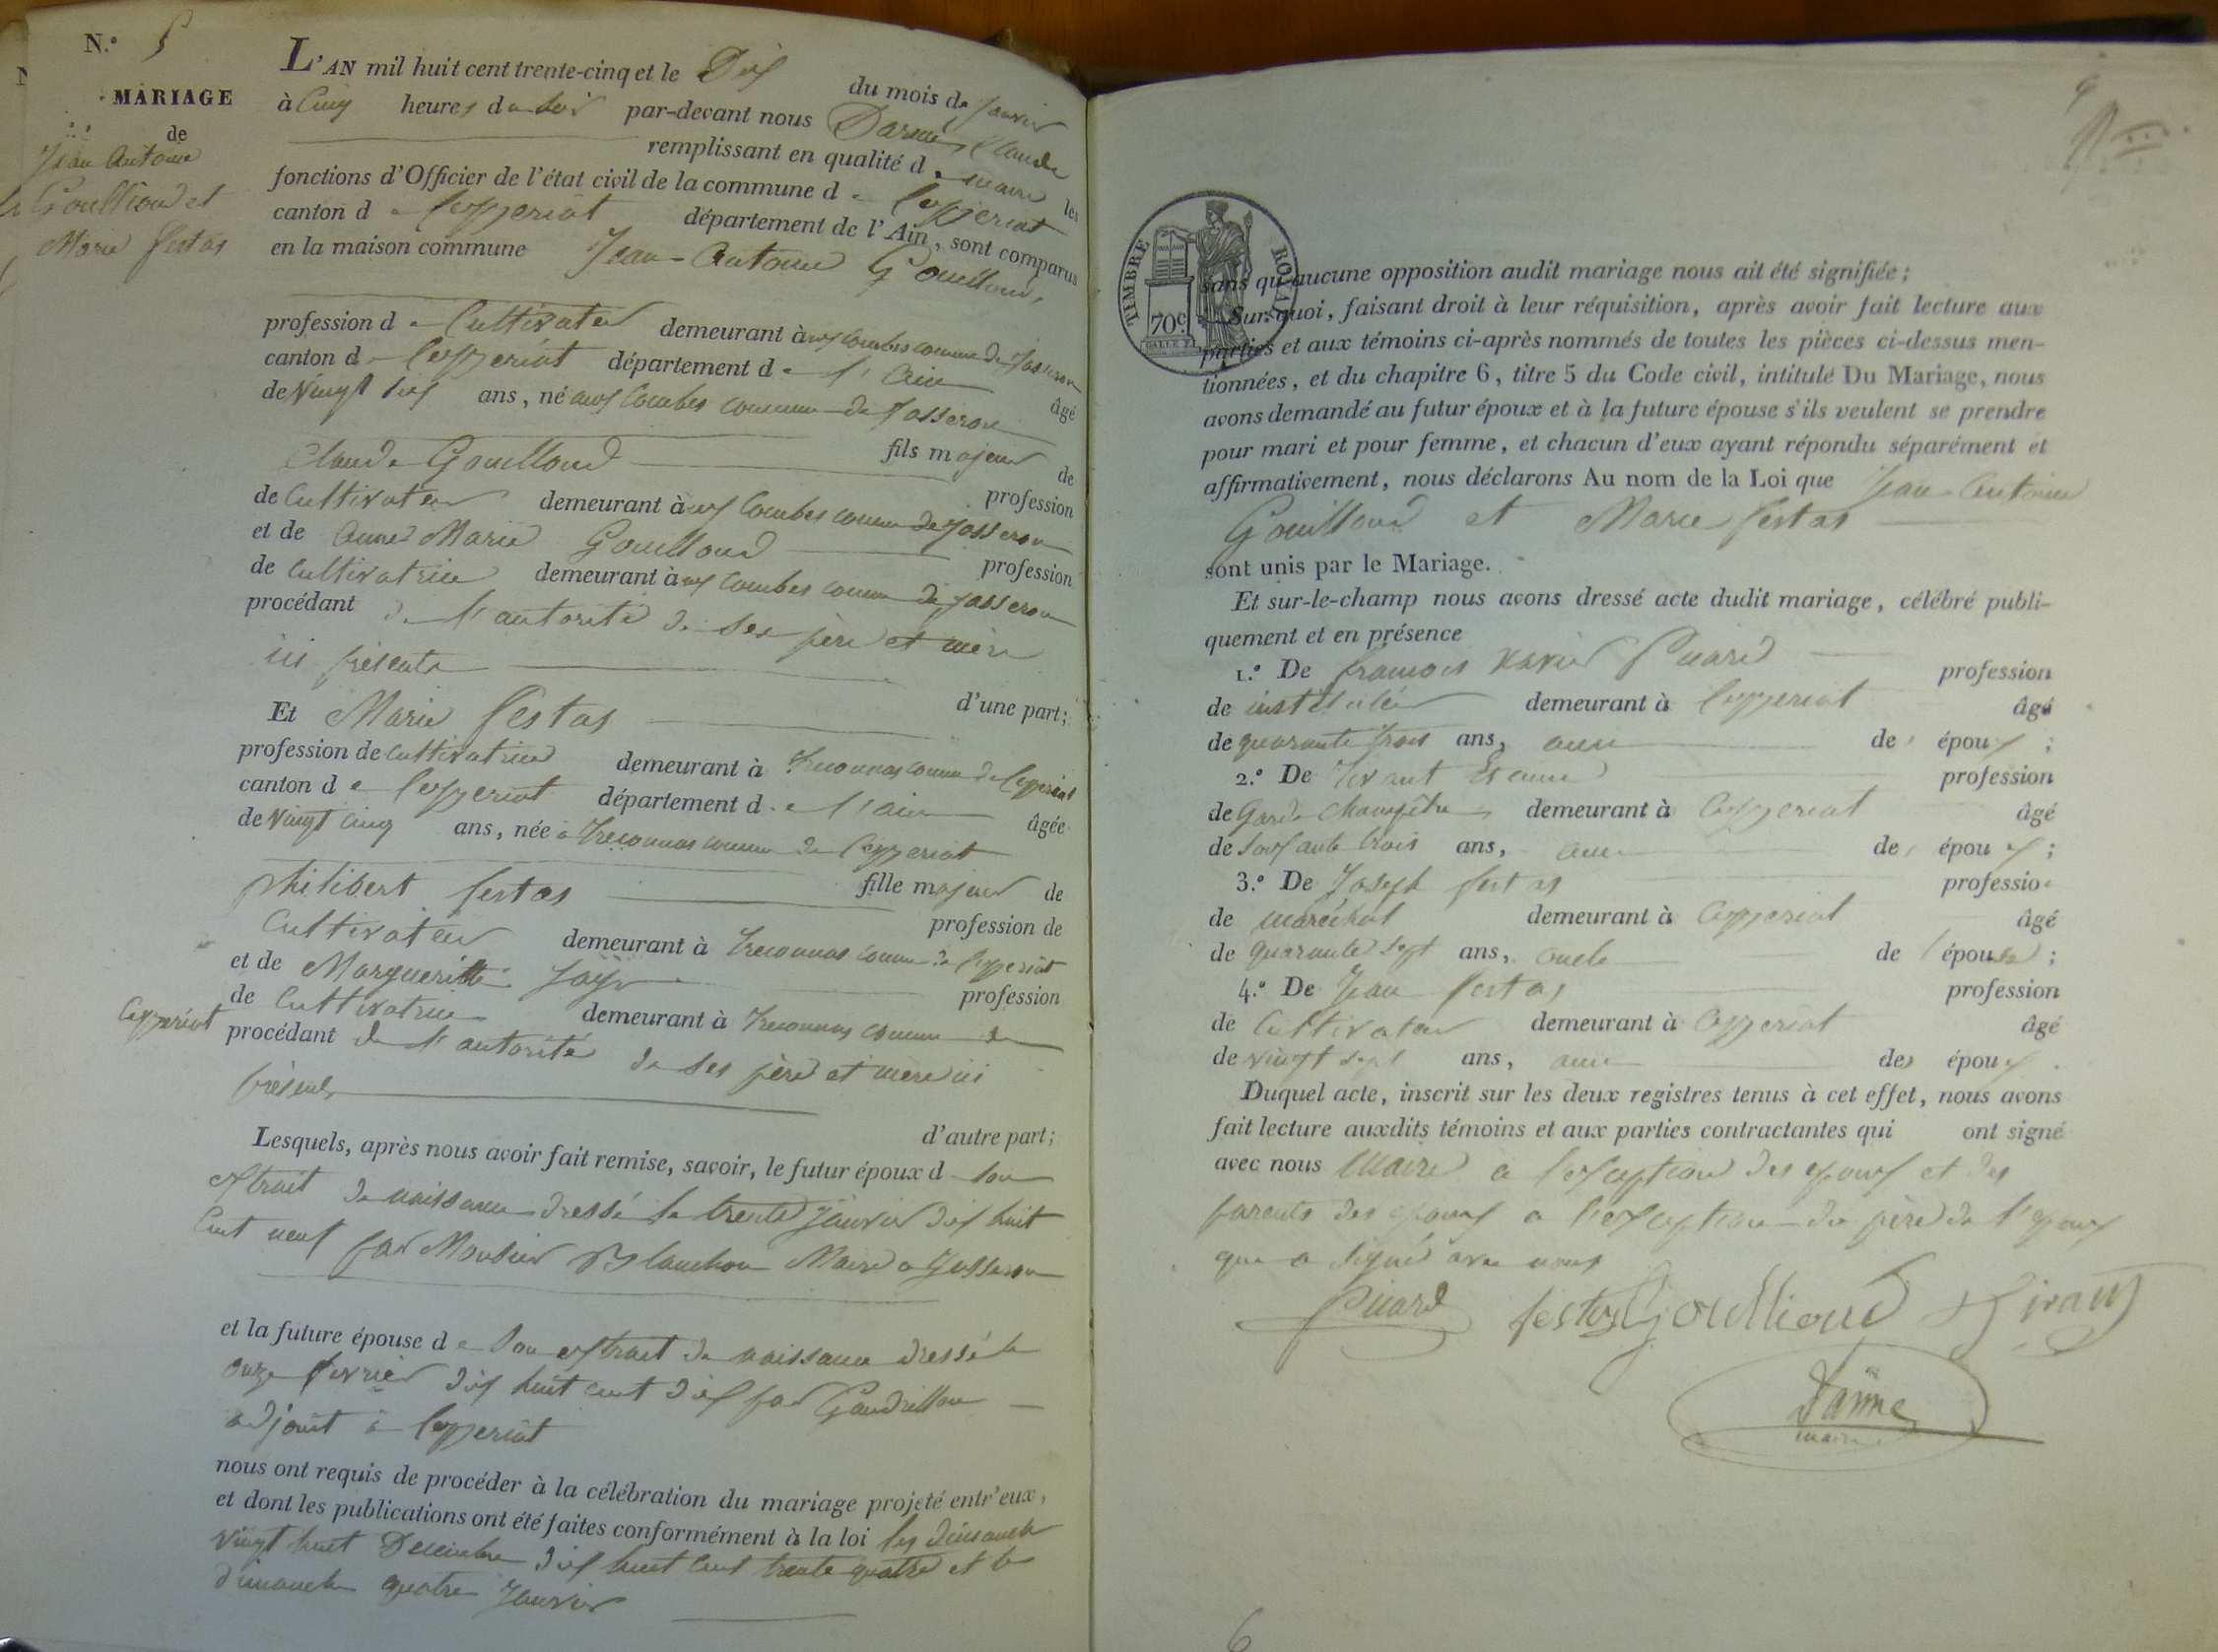 N.º 5
MARIAGE
de
Jean Antoine
Gouilloud et
Marie festas
L'AN mil huit cent trente-cinq et le Dix du mois de Janvier
à Cinq heures du soir par-devant nous Claude
remplissant en qualité de maire les
fonctions d'Officier de l'état civil de la commune de Ceyzeriat
canton de Ceyzeriat département de l'Ain, sont comparus
en la maison commune Jean-Antoine Gouilloud,
profession de Cultivateur demeurant aux Combes commune de Jasseron
canton de Ceyzeriat département de l'ain âgé
de Vingt six ans, né aux Combes commune de Jasseron
fils majeur de
Claude Gouilloud profession
de Cultivateur demeurant aux Combes commune de Jasseron
et de Anne Marie Gouilloud profession
de Cultivatrice demeurant aux Combes commune de Jasseron
procédant de l'autorité de ses père et mère
ici présents
d'une part;
Et Marie festas
profession de cultivatrice demeurant à Treconnas commune de Ceyzeriat
canton de Ceyzeriat département de l'ain âgée
de Vingt cinq ans, née à Treconnas commune de Ceyzeriat
fille majeur de
philibert festas profession de
Cultivateur demeurant à Treconnas commune de Ceyzeriat
et de Margueritte Jayr profession
de Cultivatrice demeurant à Treconnas commune de
Ceyzeriat
procédant de l'autorité de ses père et mère ici
présents
d'autre part;
Lesquels, après nous avoir fait remise, savoir, le futur époux de son
extrait de naissance dressé le trente Janvier dix huit
Cent neuf par Monsieur Blanchon Maire a Jasseron
et la future épouse de son extrait de naissance dressé le
onze fevrier dix huit cent dix par Gaudrillon
adjoint à Ceyzeriat
nous ont requis de procéder à la célébration du mariage projeté entr'eux,
et dont les publications ont été faites conformément à la loi les dimanche
vingt huit Decembre dix huit cent trente quatre et le
dimanche quatre Janvier
9
TIMBRE ROYAL
70c
sans qu'aucune opposition audit mariage nous ait été signifiée;
Sur quoi, faisant droit à leur réquisition, après avoir fait lecture aux
parties et aux témoins ci-après nommés de toutes les pièces ci-dessus men-
tionnées, et du chapitre 6, titre 5 du Code civil, intitulé Du Mariage, nous
avons demandé au futur époux et à la future épouse s'ils veulent se prendre
pour mari et pour femme, et chacun d'eux ayant répondu séparément et
affirmativement, nous déclarons Au nom de la Loi que Jean Antoine
Gouilloud et Marie festas
sont unis par le Mariage.
Et sur-le-champ nous avons dressé acte dudit mariage, célébré publi-
quement et en présence
1.º De françois xavier Picard profession
de instituteur demeurant à Ceyzeriat âgé
de quarante trois ans, ami des époux;
2.º De profession
de Garde Champêtre demeurant à Ceyzeriat âgé
de soixante trois ans, ami des époux;
3.º De Joseph festas profession
de maréchal demeurant à Ceyzeriat âgé
de quarante sept ans, oncle de l'épouse;
4.º De Jean festas profession
de Cultivateur demeurant à Ceyzeriat âgé
de vingt sept ans, ami des époux.
Duquel acte, inscrit sur les deux registres tenus à cet effet, nous avons
fait lecture auxdits témoins et aux parties contractantes qui ont signé
avec nous Maire a l'exception des epoux et des
parents des epoux a l'exception du père de l'epoux
qui a signé avec nous
Picard festas Gouilloud
maire
6